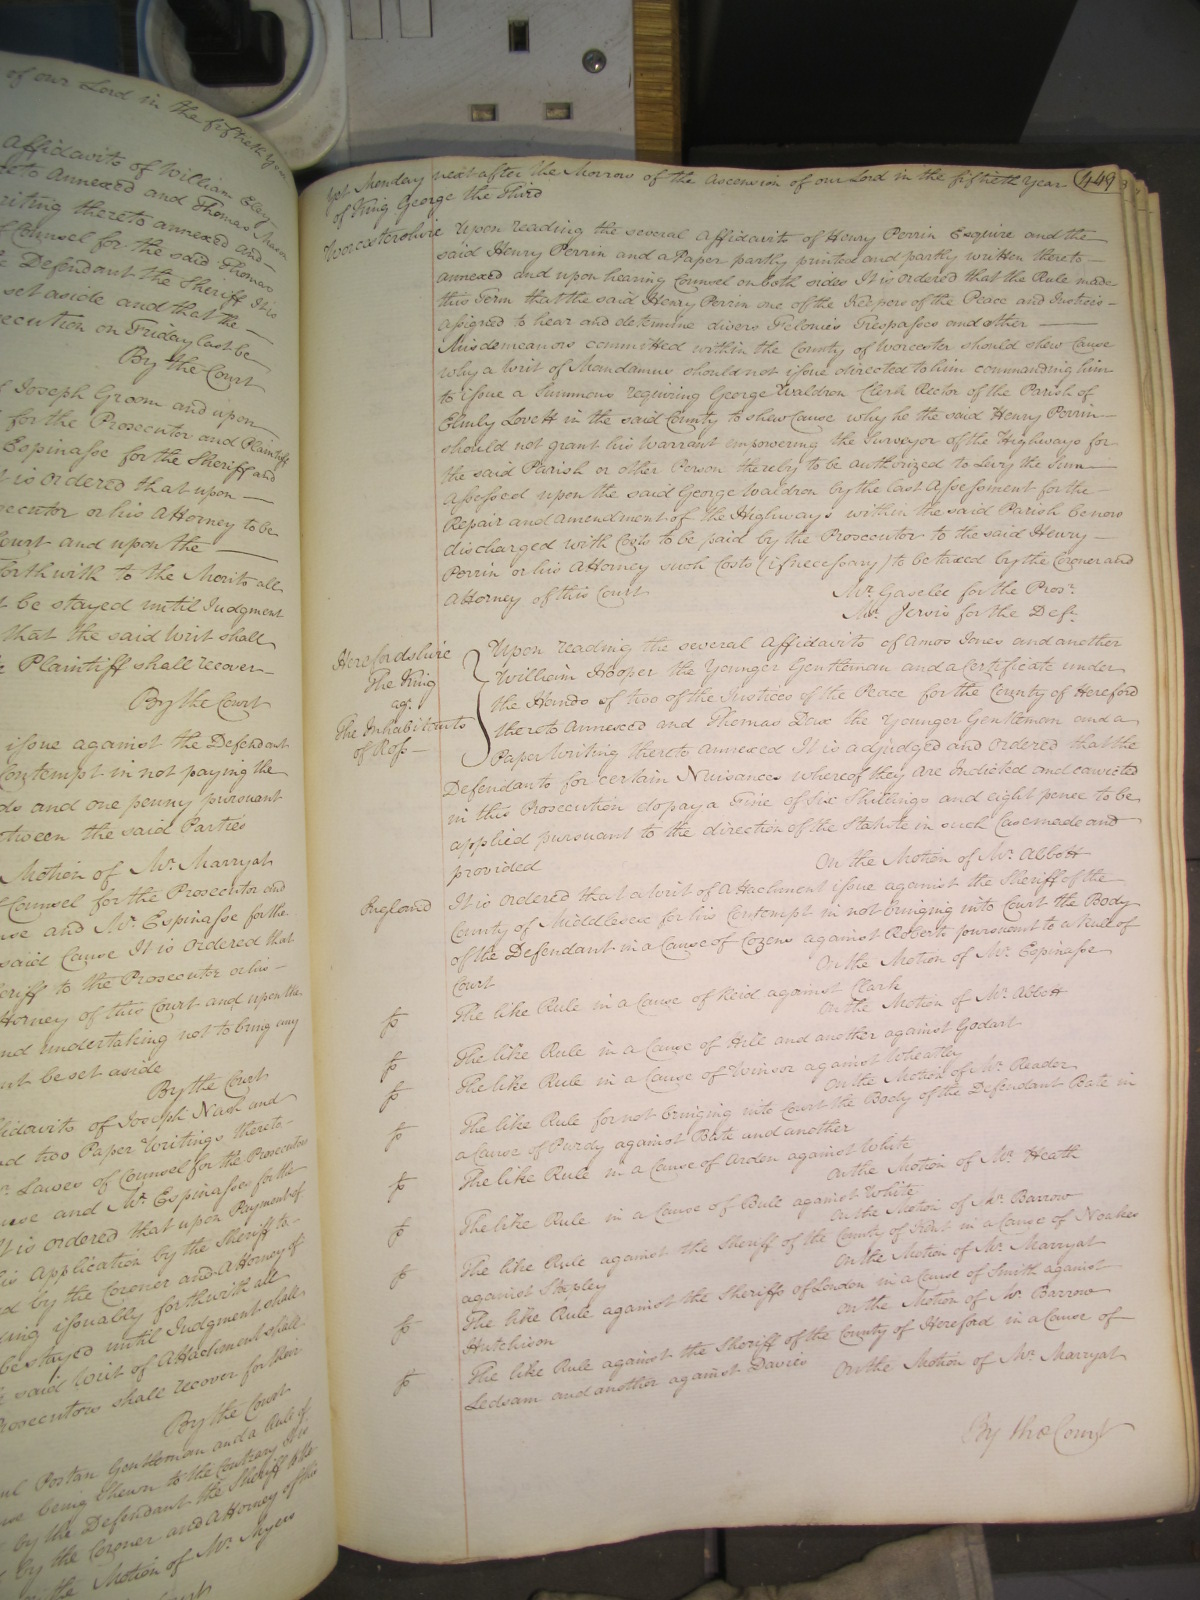 of our Lord in the fiftieth Year
Affidavits of William Eley
hereto Annexed and Thomas Mason
writing thereto annexed and
of Counsel for the said Thomas
Defendant the Sheriff It is
set aside and that the
execution on Friday last be
By the Court
Joseph Groom and upon
for the Prosecutor and Plaintiff
Espinasse for the Sheriff and
It is ordered that upon
Prosecutor or his Attorney to be
Court and upon the
forthwith to the Merits all
be stayed until Judgment
that the said Writ shall
Plaintiff shall recover
By the Court
issue against the Defendant
Contempt in not paying the
and one penny pursuant
between the said Parties
Motion of Mr. Marryat
Counsel for the Prosecutor and
and Mr. Espinasse for the
said Cause It is Ordered that
Sheriff to the Prosecutor or his
Attorney of this Court and upon the
and undertaking not to bring any
be set aside
By the Court
Affidavits of Joseph Nash and
and two Paper Writings thereto
Mr. Lawes of Counsel for the Prosecutors
and Mr. Espinasse for the
It is ordered that upon Payment of
this Application by the Sheriff to
by the Coroner and Attorney of
issuably forthwith all
be stayed until Judgment shall
said Writ of Attachment shall
Prosecutors shall recover for their
By the Court
Portan Gentleman and a Rule of
being Shewn to the Contrary It is
by the Defendant the Sheriff to the
by the Coroner and Attorney of this
the Motion of Mr. Myers
Court
Yet Monday next after the Morrow of the Ascension of our Lord in the fiftieth Year 449
of King George the Third
Worcestershire Upon reading the several Affidavits of Henry Perrin Esquire and the
said Henry Perrin and a Paper partly printed and partly written thereto
annexed and upon hearing Counsel on both sides It is ordered that the Rule made
this Term that the said Henry Perrin one of the Keepers of the Peace and Justices
assigned to hear and determine divers Felonies Trespasses and other
Misdemeanors committed within the County of Worcester should shew Cause
why a Writ of Mandamus should not issue directed to him commanding him
to issue a Summons requiring George Waldron Clerk Rector of the Parish of
Elmly Lovett in the said County to shew Cause why he the said Henry Perrin
should not grant his Warrant empowering the Surveyor of the Highways for
the said Parish or other Person thereby to be authorized to Levy the Sum
Assessed upon the said George Waldron by the last Assessment for the
Repair and amendment of the Highways within the said Parish be now
discharged with Costs to be paid by the Prosecutor to the said Henry
Perrin or his Attorney such Costs (if necessary) to be taxed by the Coroner and
Attorney of this Court
Mr. Gaselee for the Prosr.
Mr. Jervis for the Deft.
Herefordshire
The King
agt.
The Inhabitants
of Ross
Upon reading the several Affidavits of Amos Jones and another
William Hooper the Younger Gentleman and a Certificate under
the Hands of two of the Justices of the Peace for the County of Hereford
thereto Annexed and Thomas Dew the Younger Gentleman and a
Paper Writing thereto annexed It is adjudged and Ordered that the
Defendants for certain Nuisances whereof they are Indicted and convicted
in this Prosecution do pay a Fine of Six Shillings and eight pence to be
applied pursuant to the direction of the Statute in such Case made and
provided
On the Motion of Mr. Abbott
England It is ordered that a Writ of Attachment issue against the Sheriff of the
County of Middlesex for his Contempt in not bringing into Court the Body
of the Defendant in a Cause of Cozens against Roberts pursuant to a Rule of
Court
On the Motion of Mr. Espinasse
The like Rule in a Cause of Reid against Clark
On the Motion of Mr. Abbott
The like Rule in a Cause of Hill and another against Godart
The like Rule in a Cause of Winsor against Wheatley
On the Motion of Mr. Reader
The like Rule for not bringing into Court the Body of the Defendant Bate in
a Cause of Purdy against Bate and another
The like Rule in a Cause of Arden against White
On the Motion of Mr. Heath
The like Rule in a Cause of Bull against White
On the Motion of Mr. Barrow
The like Rule against the Sheriff of the County of Kent in a Cause of Noakes
against Stapley
On the Motion of Mr. Marryat
The like Rule against the Sheriffs of London in a Cause of Smith against
Hutchison
On the Motion of Mr. Barrow
The like Rule against the Sheriff of the County of Hereford in a Cause of
Ledsam and another against Davies
On the Motion of Mr. Marryat
By the Court